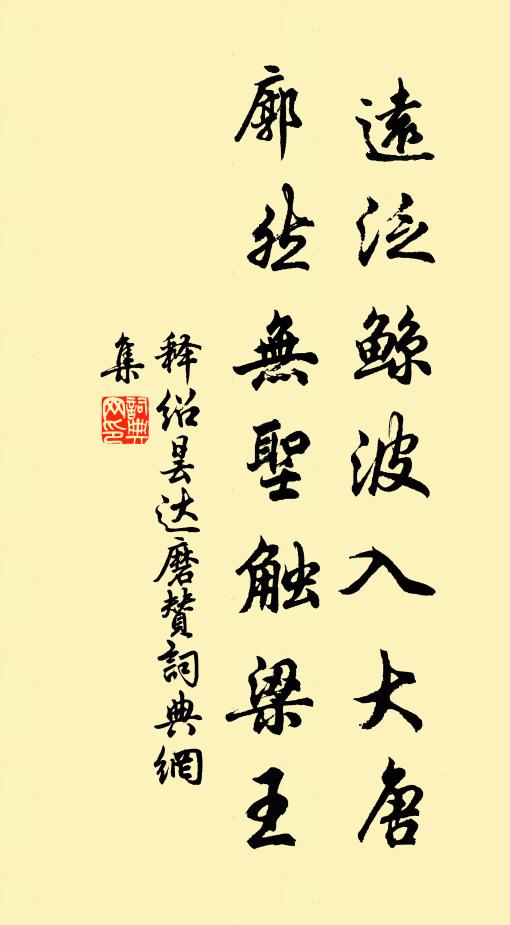 遠泛鲸波入大唐
廓然無聖触梁王
释绍昙达磨赞詞典網
集
詞典
网印